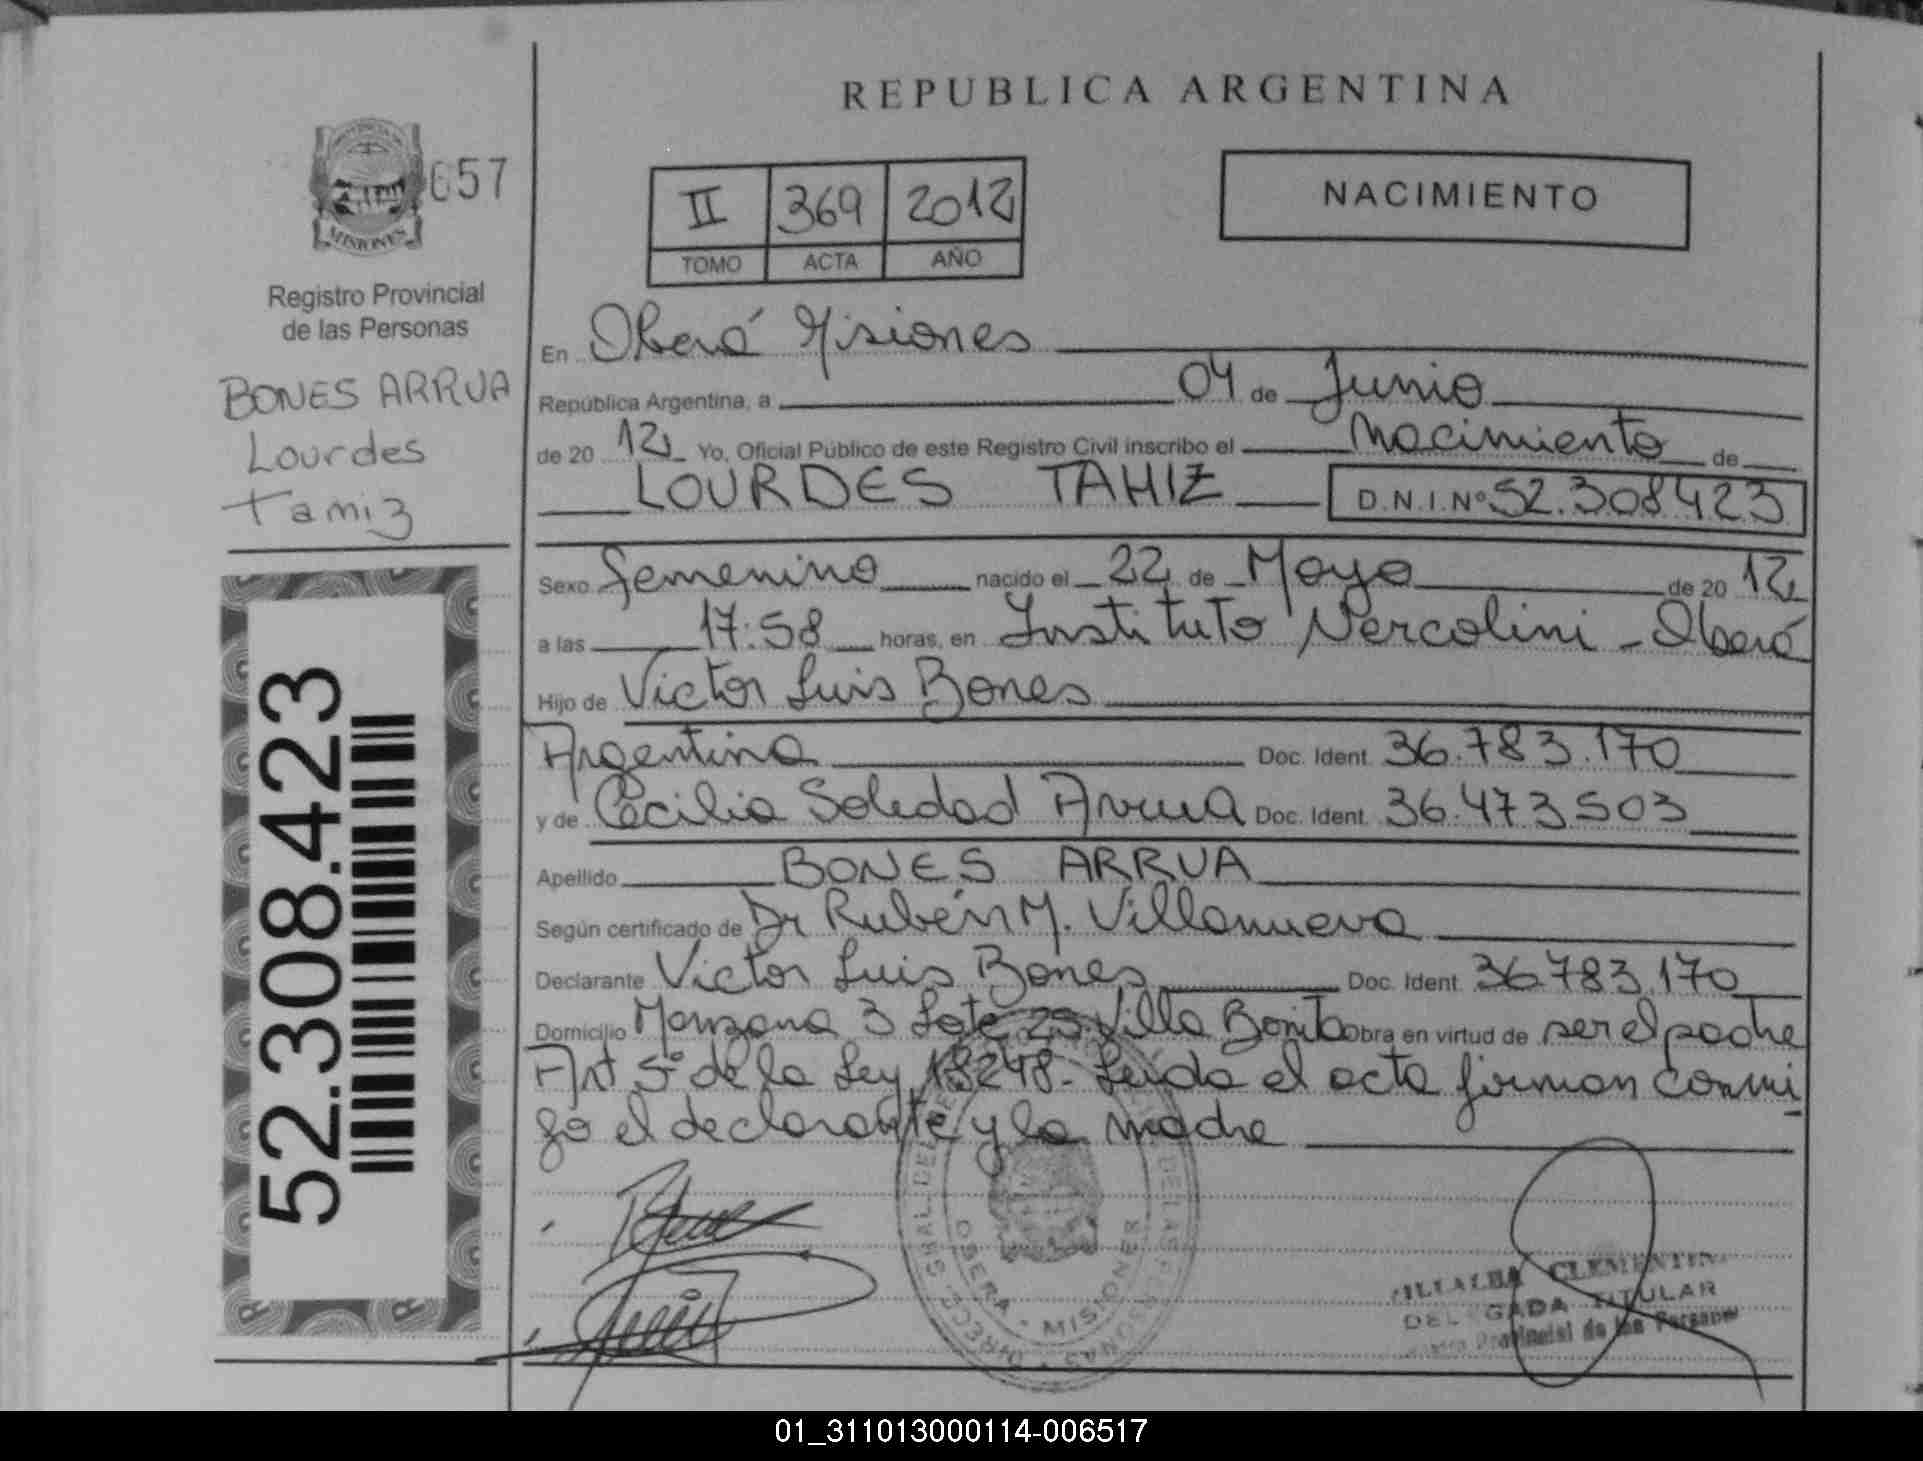 REPUBLICA ARGENTINA
MISIONES
657
Registro Provincial
de las Personas
BONES ARRUA
Lourdes
Tamiz
52.308.423
II 369 2012
TOMO ACTA AÑO
NACIMIENTO
En Oberá Misiones
República Argentina, a 04 de Junio
de 2012 Yo, Oficial Público de este Registro Civil inscribo el Nacimiento de
LOURDES TAHIZ D.N.I.Nº 52.308423
Sexo Femenino nacido el 22 de Mayo de 2012
a las 17:58 horas, en Instituto Vercolini - Oberá
Hijo de Victor Luis Bones
Argentina Doc. Ident. 36.783.170
y de Cecilia Soledad Arrua Doc. Ident. 36.473.503
Apellido BONES ARRUA
Según certificado de Dr Rubén M. Villanueva
Declarante Victor Luis Bones Doc. Ident. 36783.170
Domicilio Manzana 3 Lote 25 Villa Bonita obra en virtud de ser el padre
Art 5º de la Ley 18248- Leída el acta firman conmi
go el declarante y la madre
OBERA - MISIONES
VILLALBA CLEMENTINA
DELEGADA TITULAR
Provincial de las Personas
01_311013000114-006517